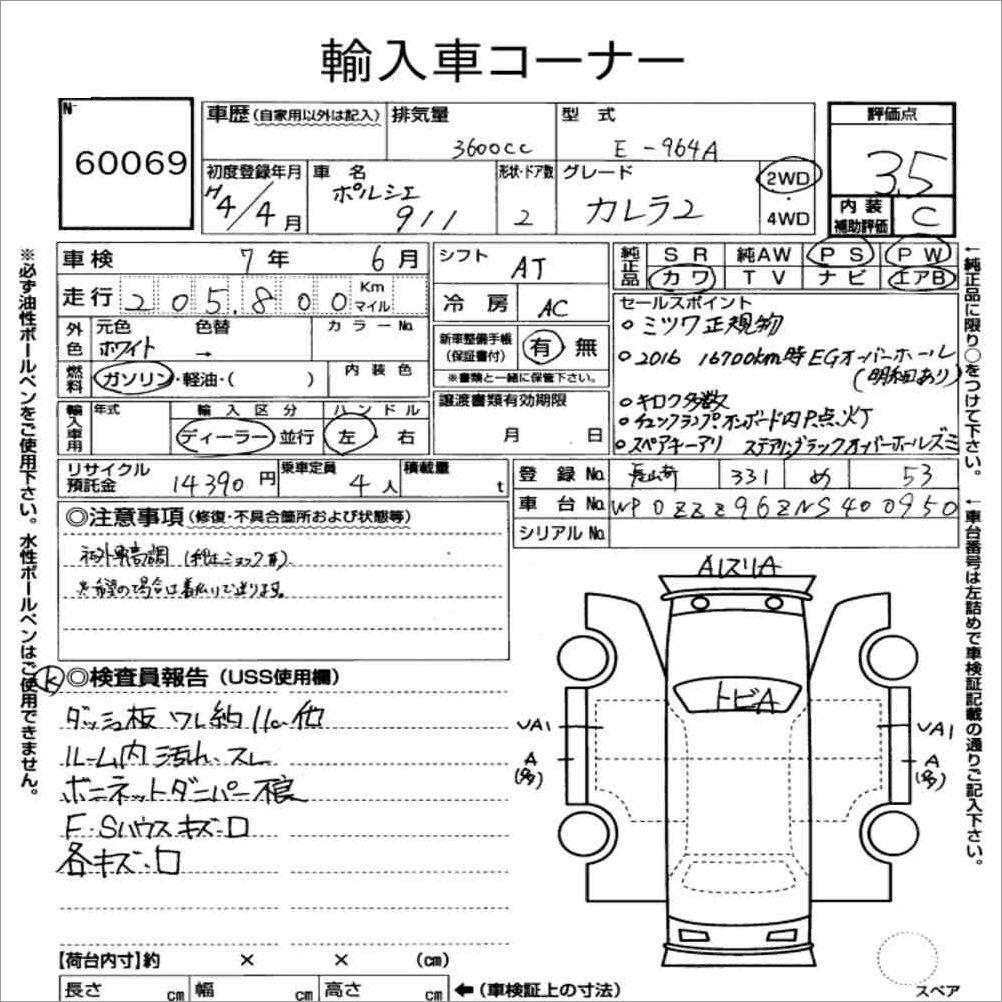 輸入車コーナー
No
60069
車歴 (自家用以外は記入)
排気量
3600cc
型式
E-964A
評価点
3.5
初度登録年月
H4/4月
車名
ポルシェ
911
形状・ドア数
2
グレード
カレラ2
2WD
4WD
内装
補助評価
C
車検 7年 6月
シフト
AT
純正品
SR 純AW PS PW
カワ TV ナビ エアB
走行 205,800 Km
マイル
冷房 AC
セールスポイント
○ミツワ正規物
○2016 16700km時EGオーバーホール
(明細あり)
○キロク多数
○チェンジランプオンボード内P.点火丁
○スペアキーアリ ステアリングラックオーバーホールズミ
外色
元色
ホワイト
色替
→
カラーNo.
新車整備手帳
(保証書付)
有 無
※書類と一緒に保管下さい。
燃料
ガソリン・軽油・( )
内装色
譲渡書類有効期限
月 日
輸入車用
年式
輸入区分
ディーラー 並行
ハンドル
左・右
リサイクル
預託金
14390円
乗車定員
4人
積載量
t
登録No. 331 め 53
車台No. WP0ZZZ96ZNS400950
シリアルNo.
◎注意事項 (修復・不具合箇所および状態等)
社外車高調
※希望の場合は着払いで送ります。
◎検査員報告 (USS使用欄)
ダッシュ板ワレ約11cm他
ルーム内汚れ、スレ
ボンネットダンパー不良
F・Sハウスキズ・凹
各キズ・凹
AスリA
トビA
UA1
A
(多)
UA1
A
(多)
スペア
【荷台内寸】約 × × (cm)
長さ cm 幅 cm 高さ cm
←(車検証上の寸法)
※必ず油性ボールペンをご使用下さい。水性ボールペンはご使用できません。
←純正品に限り○をつけて下さい。
←車台番号は左詰めで車検証記載の通りご記入下さい。